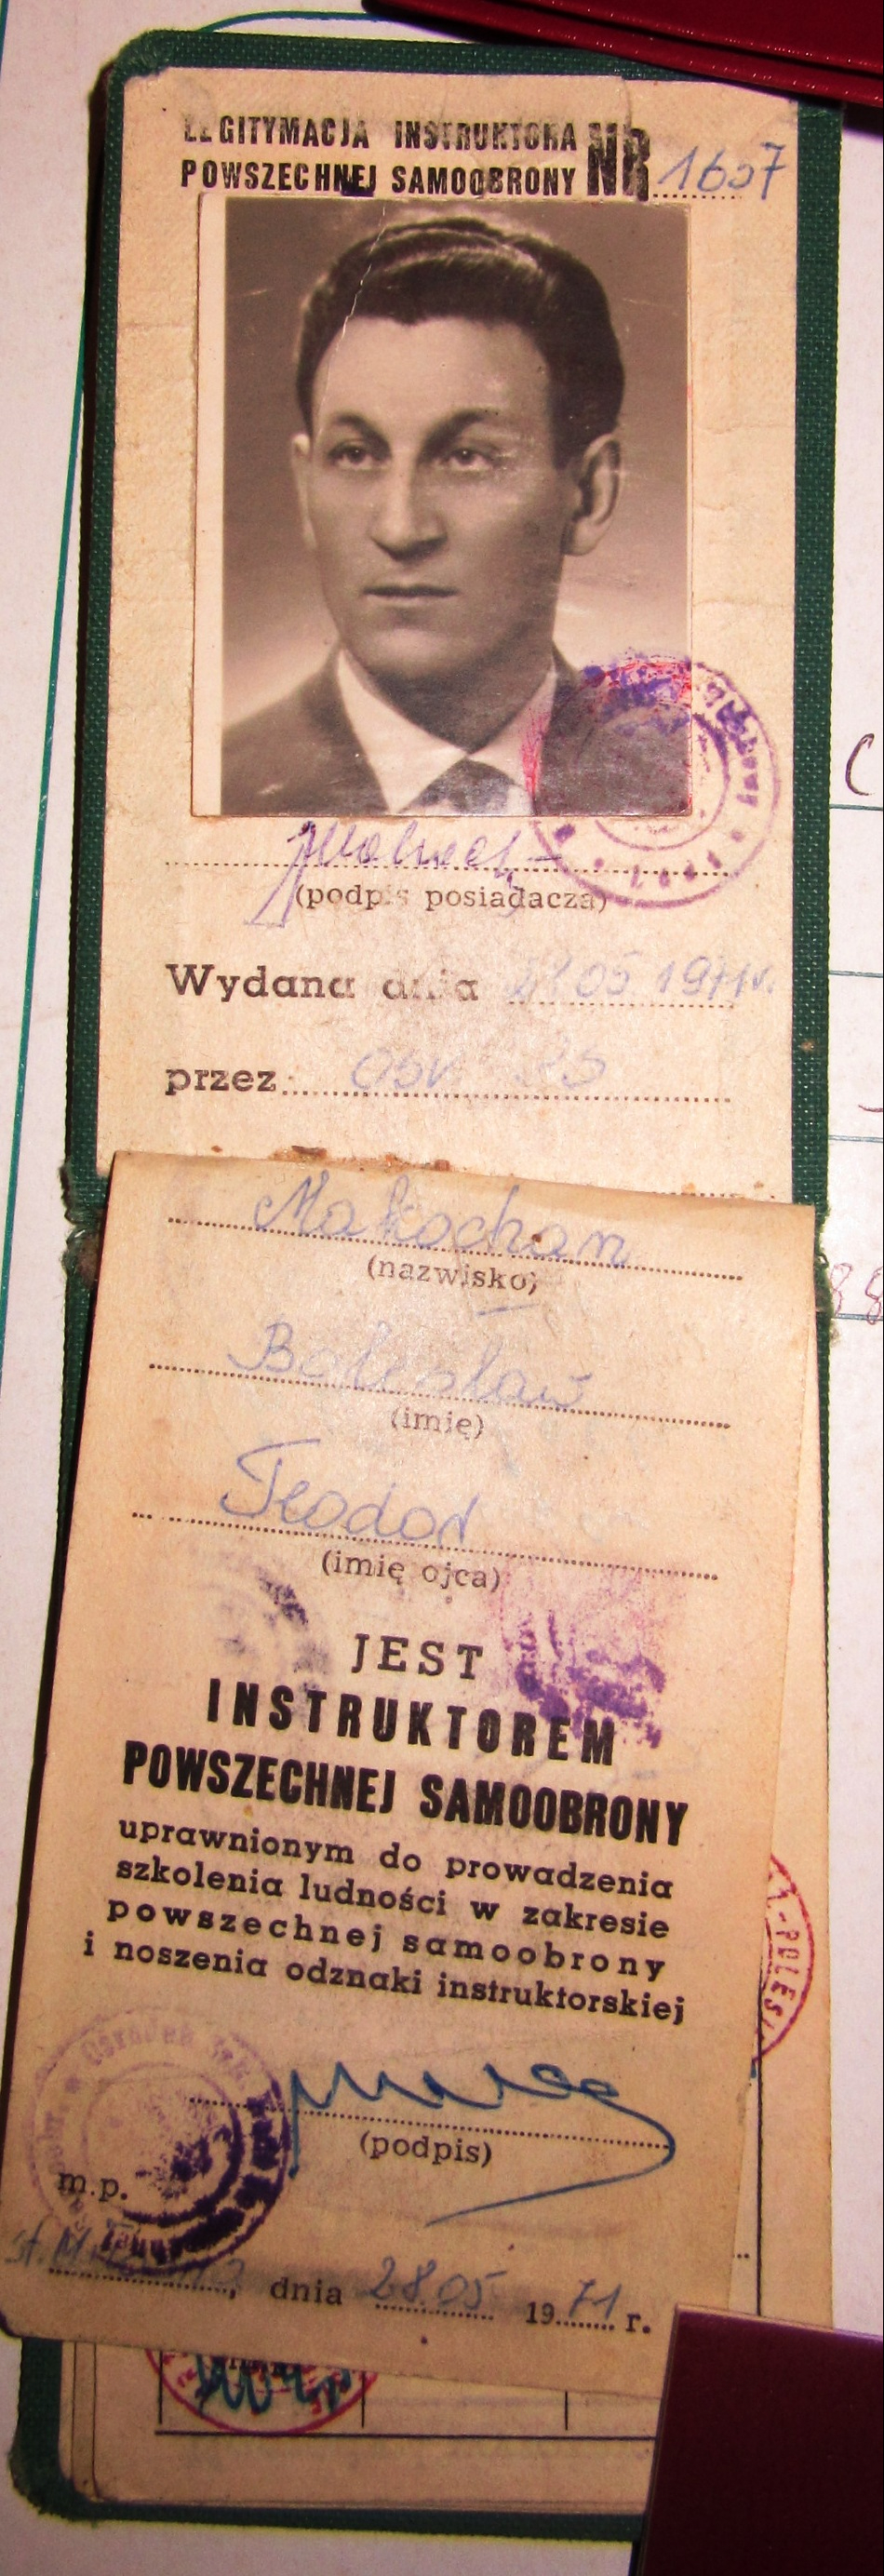 LEGITYMACJA INSTRUKTORA
POWSZECHNEJ SAMOOBRONY NR 1607
(podpis posiadacza)
Wydana dnia 28 05 1971 r.
przez
Makochan
(nazwisko)
Bolesław
(imię)
Teodor
(imię ojca)
JEST
INSTRUKTOREM
POWSZECHNEJ SAMOOBRONY
uprawnionym do prowadzenia
szkolenia ludności w zakresie
powszechnej samoobrony
i noszenia odznaki instruktorskiej
(podpis)
m.p.
, dnia 28 05 1971 r.